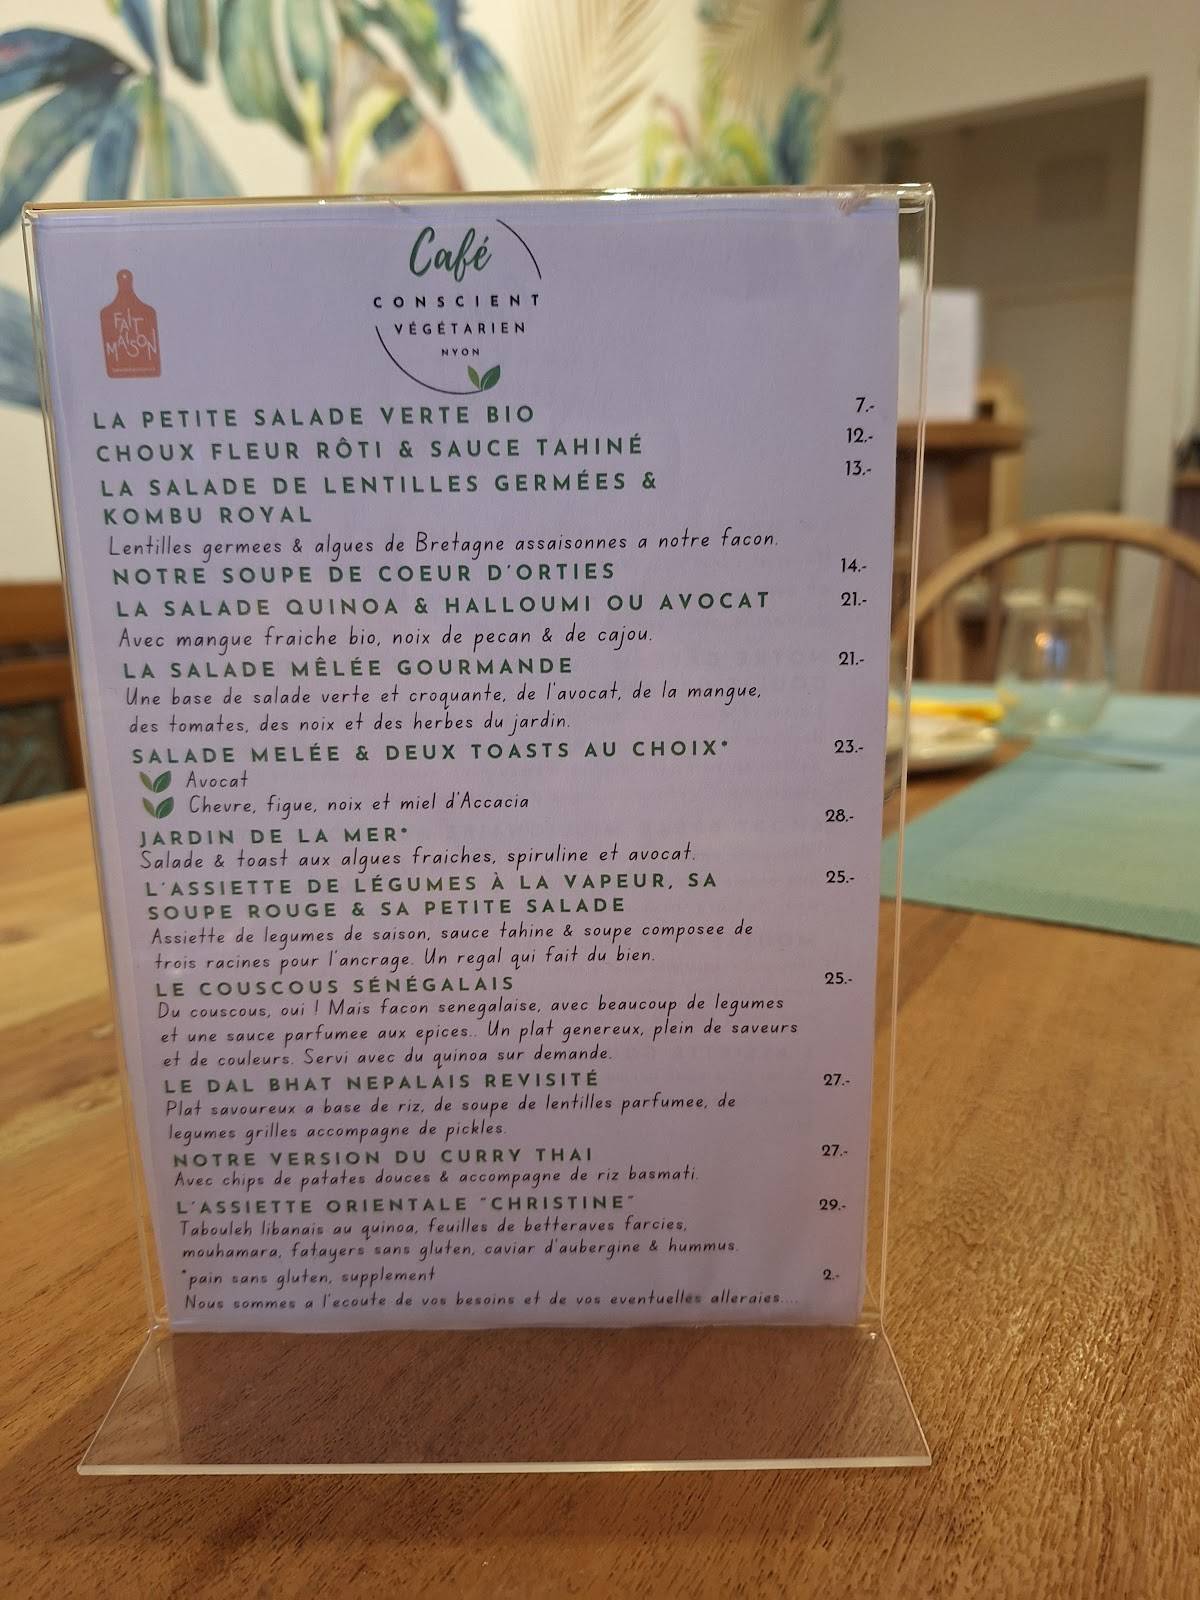 Café
CONSCIENT
VÉGÉTARIEN
NYON
FAIT
MAISON
LA PETITE SALADE VERTE BIO 7.-
CHOUX FLEUR RÔTI & SAUCE TAHINÉ 12.-
LA SALADE DE LENTILLES GERMÉES & 13.-
KOMBU ROYAL
Lentilles germees & algues de Bretagne assaisonnes a notre facon.
NOTRE SOUPE DE COEUR D'ORTIES 14.-
LA SALADE QUINOA & HALLOUMI OU AVOCAT 21.-
Avec mangue fraiche bio, noix de pecan & de cajou.
LA SALADE MÊLÉE GOURMANDE 21.-
Une base de salade verte et croquante, de l'avocat, de la mangue,
des tomates, des noix et des herbes du jardin.
SALADE MELÉE & DEUX TOASTS AU CHOIX* 23.-
Avocat
Chevre, figue, noix et miel d'Accacia
JARDIN DE LA MER* 28.-
Salade & toast aux algues fraiches, spiruline et avocat.
L'ASSIETTE DE LÉGUMES À LA VAPEUR, SA 25.-
SOUPE ROUGE & SA PETITE SALADE
Assiette de legumes de saison, sauce tahine & soupe composee de
trois racines pour l'ancrage. Un regal qui fait du bien.
LE COUSCOUS SÉNÉGALAIS 25.-
Du couscous, oui ! Mais facon senegalaise, avec beaucoup de legumes
et une sauce parfumee aux epices.. Un plat genereux, plein de saveurs
et de couleurs. Servi avec du quinoa sur demande.
LE DAL BHAT NEPALAIS REVISITÉ 27.-
Plat savoureux a base de riz, de soupe de lentilles parfumee, de
legumes grilles accompagne de pickles.
NOTRE VERSION DU CURRY THAI 27.-
Avec chips de patates douces & accompagne de riz basmati.
L'ASSIETTE ORIENTALE "CHRISTINE" 29.-
Tabouleh libanais au quinoa, feuilles de betteraves farcies,
mouhamara, fatayers sans gluten, caviar d'aubergine & hummus.
*pain sans gluten, supplement 2.-
Nous sommes a l'ecoute de vos besoins et de vos eventuelles alleraies....